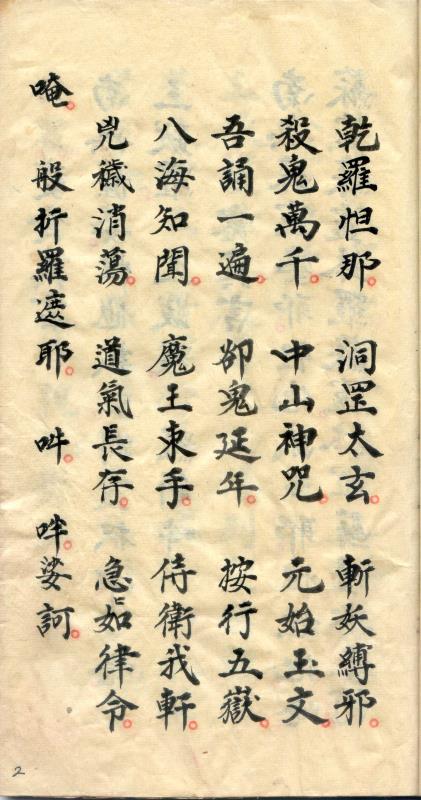 乾羅怛那。洞罡太玄。斬妖縛邪。
殺鬼萬千。中山神咒。元始玉文。
吾誦一遍。卻鬼延年。按行五嶽。
八海知聞。魔王束手。侍衛我軒。
兇穢消蕩。道氣長存。急々如律令。
唵。般折羅遮耶。吽。吽娑訶。
2